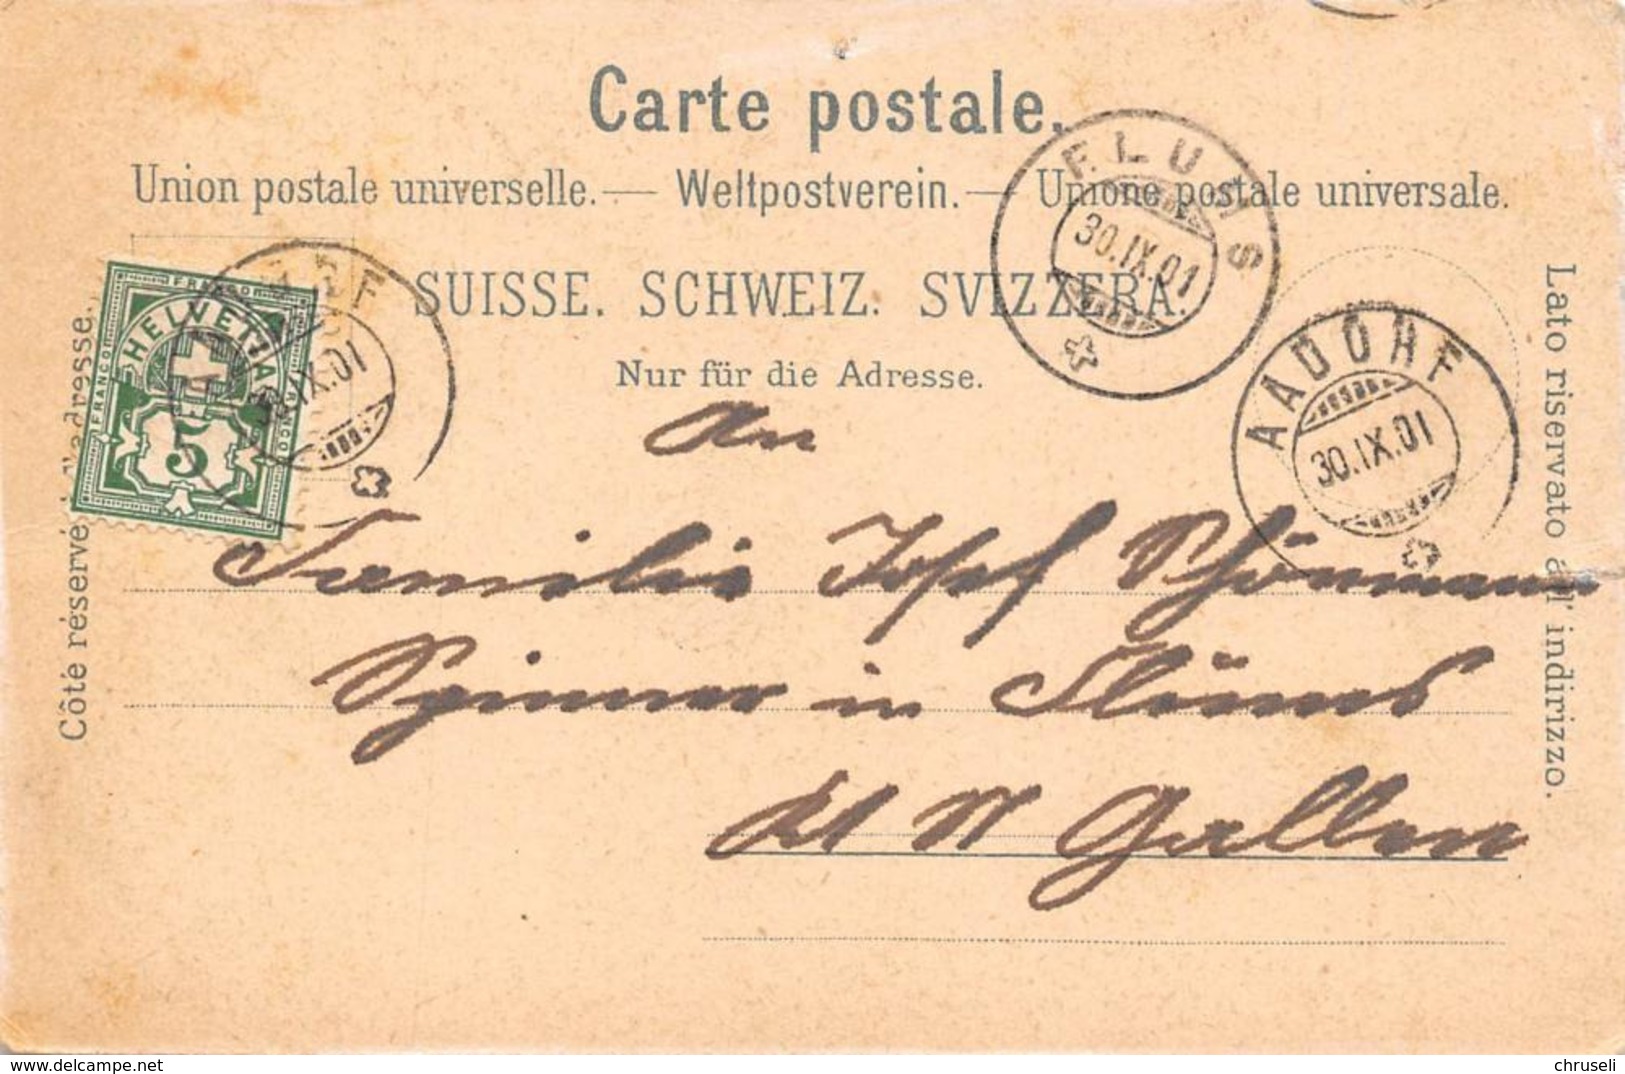 Carte postale.
Union postale universelle. — Weltpostverein. — Unione postale universale.
SUISSE. SCHWEIZ. SVIZZERA.
Nur für die Adresse.
Côté réservé à l'adresse.
Lato riservato all' indirizzo.
FLUMS
30.IX.01
AADORF
30.IX.01
AADORF
30.IX.01
FRANCO
FRANCO
FRANCO
HELVETIA
5
An
Familie Josef Schönmann
Spinner in Flums
Kt St Gallen
delcampe.net
chruseli